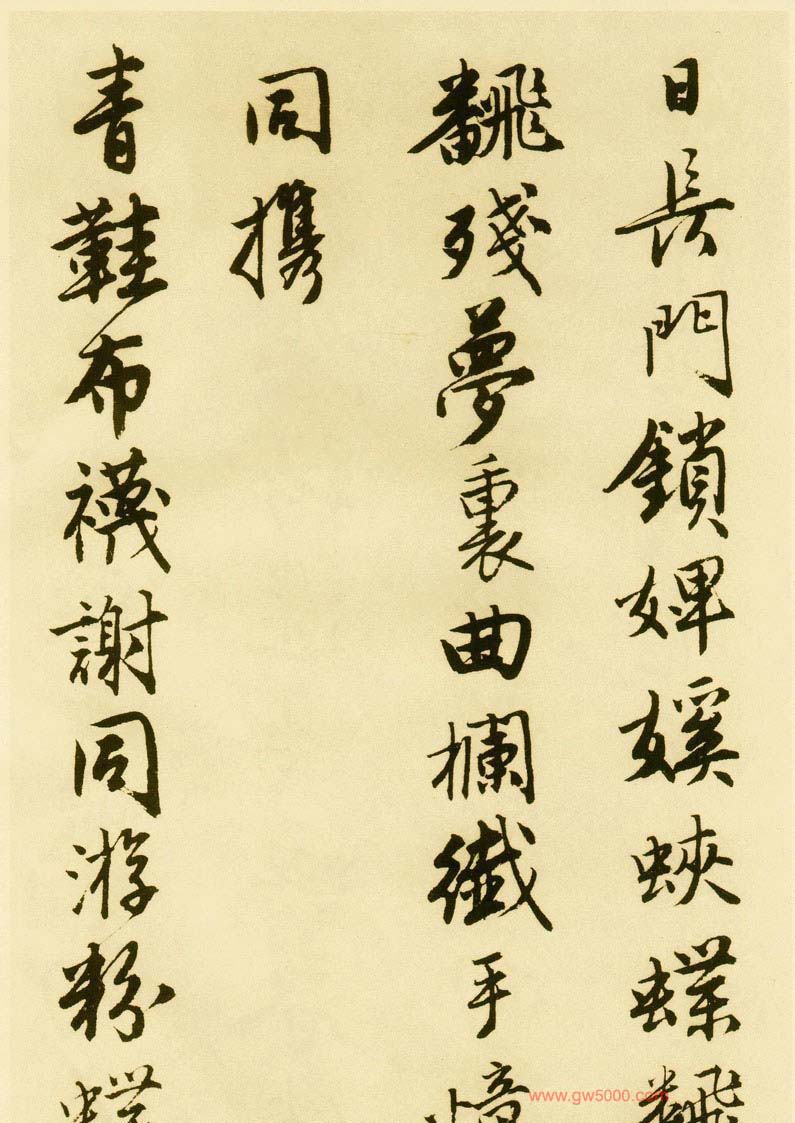 日長門鎖婢㜎蛺蝶飜
飜殘夢裏曲欄纖手憶
同携
青鞋布襪謝同游粉蝶
www.gw5000.com